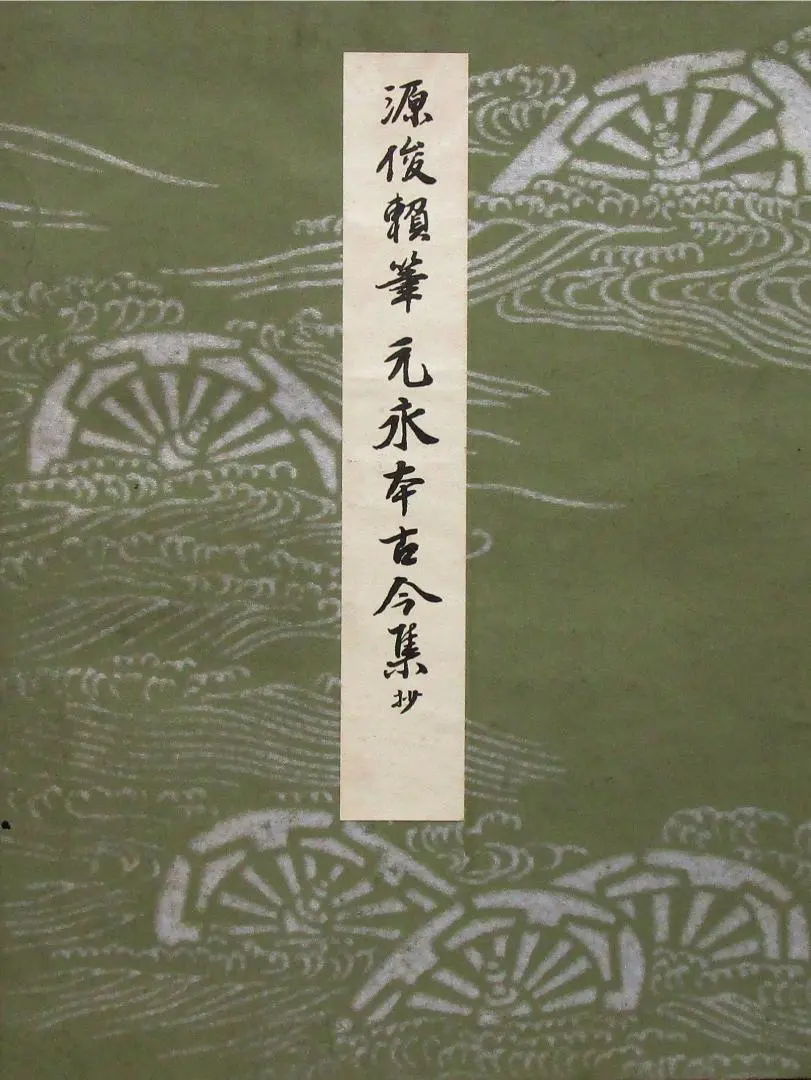 源俊頼筆 元永本古今集抄